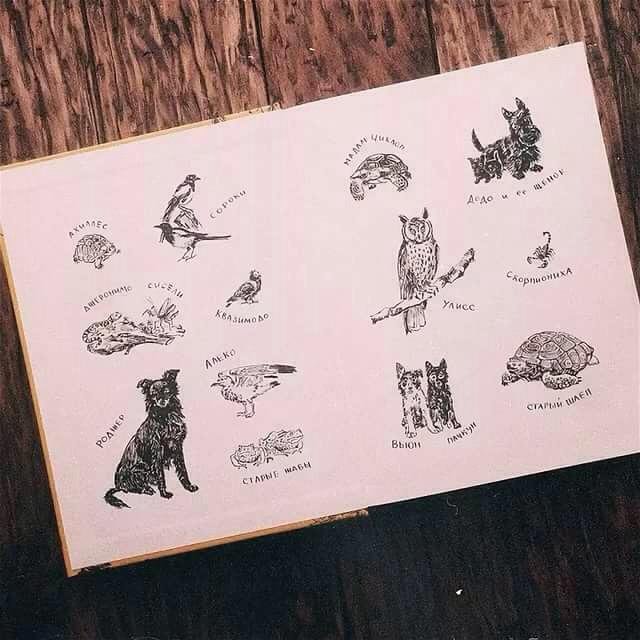 АХИЛЛЕС
СОРОКИ
ДЖЕРОНИМО СИСЕЛИ
КВАЗИМОДО
АЛЕКО
РОДЖЕР
СТАРЫЕ ЖАБЫ
МАДАМ ЦИКЛОП
ДОДО И ЕЕ ЩЕНОК
УЛИСС
СКОРПИОНИХА
ВЬЮН
ПАЧКУН
СТАРЫЙ ШЛЕП